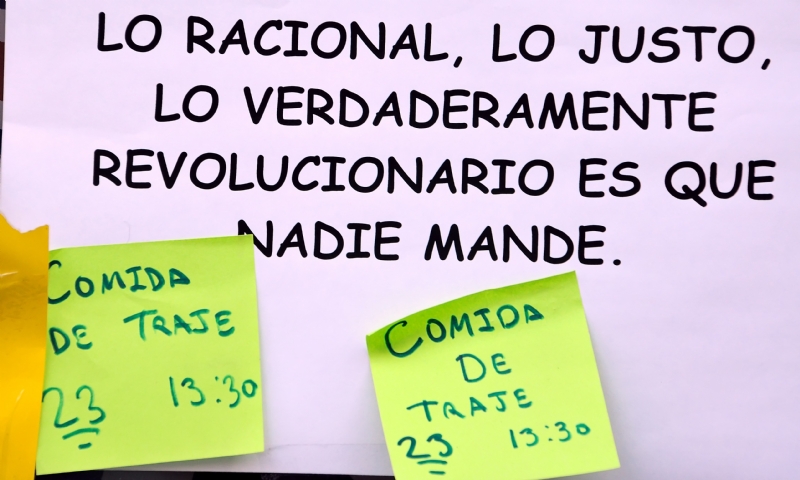 LO RACIONAL, LO JUSTO,
LO VERDADERAMENTE
REVOLUCIONARIO ES QUE
NADIE MANDE.
COMIDA
DE TRAJE
23 13:30
COMIDA
DE
TRAJE
23 13:30